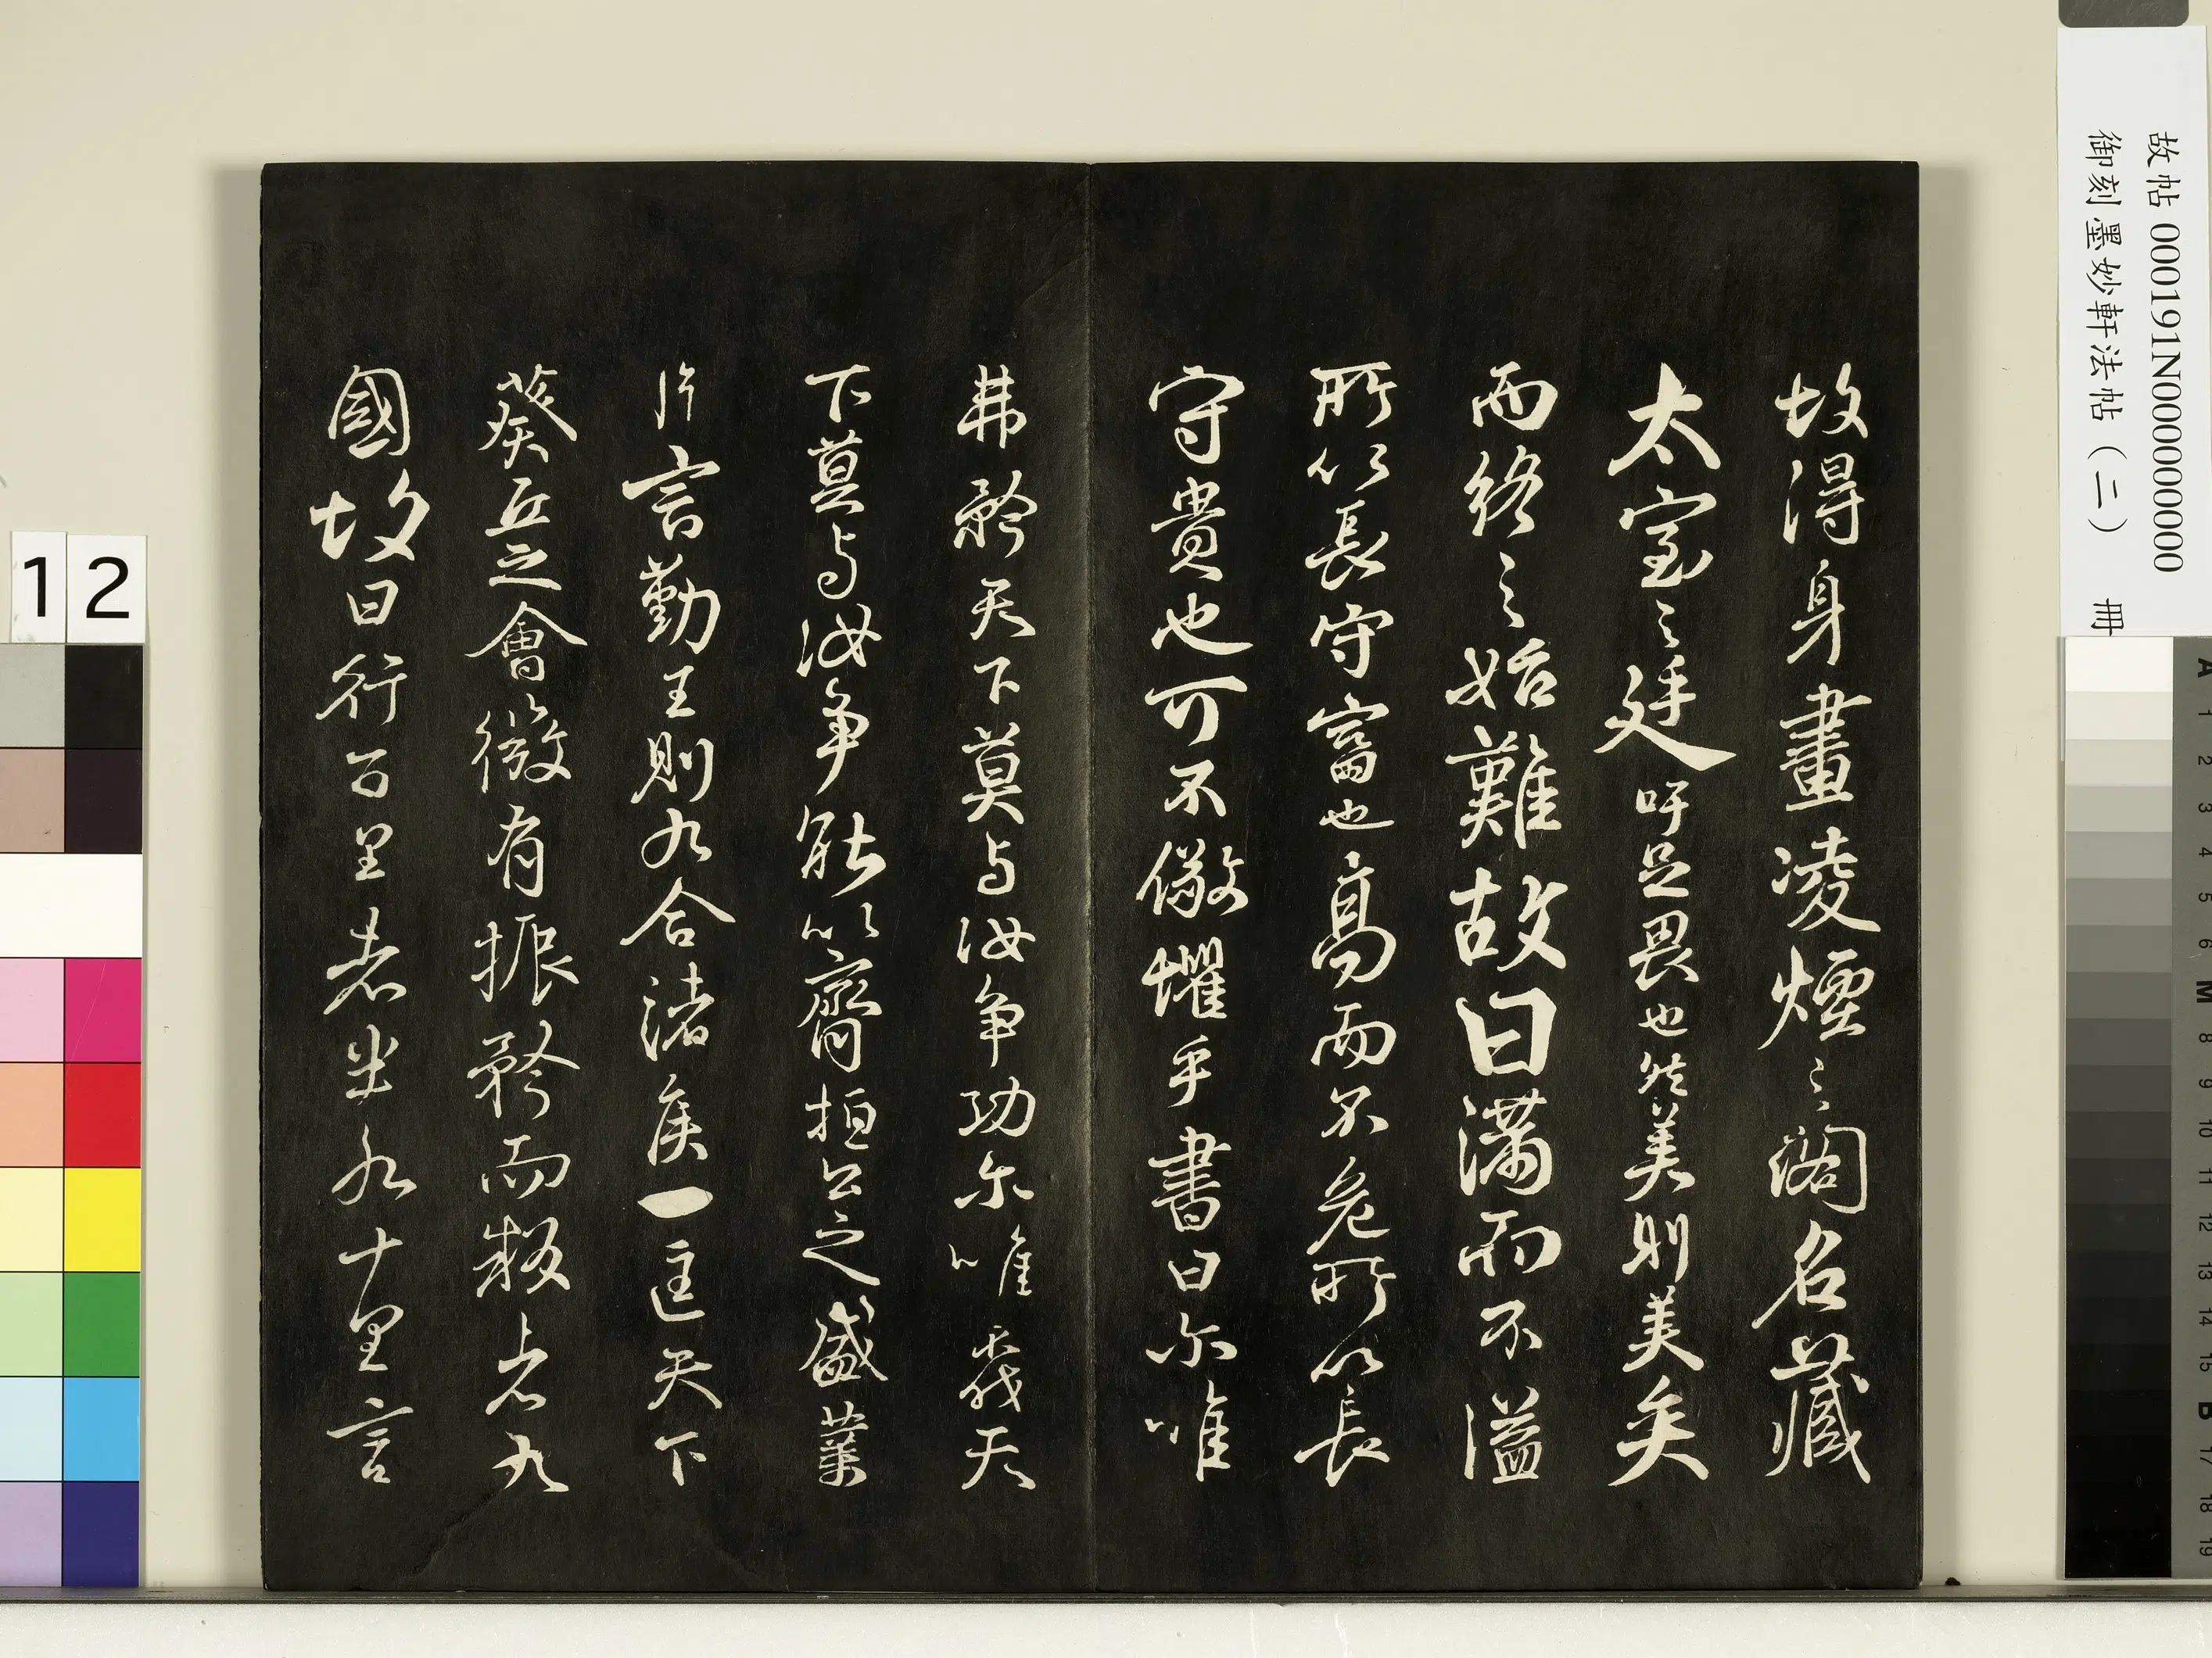 故帖 000191N000000000
御刻墨妙軒法帖（二） 冊
故得身畫凌煙之閣名藏
太室之廷吁足畏也然美則美矣
而終之始難故曰滿而不溢
所以長守富也高而不危所以長
守貴也可不儆懼乎書曰尔唯
弗矜天下莫与汝争功尔唯不伐天
下莫与汝争能以齊桓公之盛業
片言勤王則九合諸侯一匡天下
葵丘之會微有振矜而叛者九
國故曰行百里者半九十里言
12
A 1 2 3 4 5 6 M 8 9 10 11 12 13 14 15 B 17 18 19